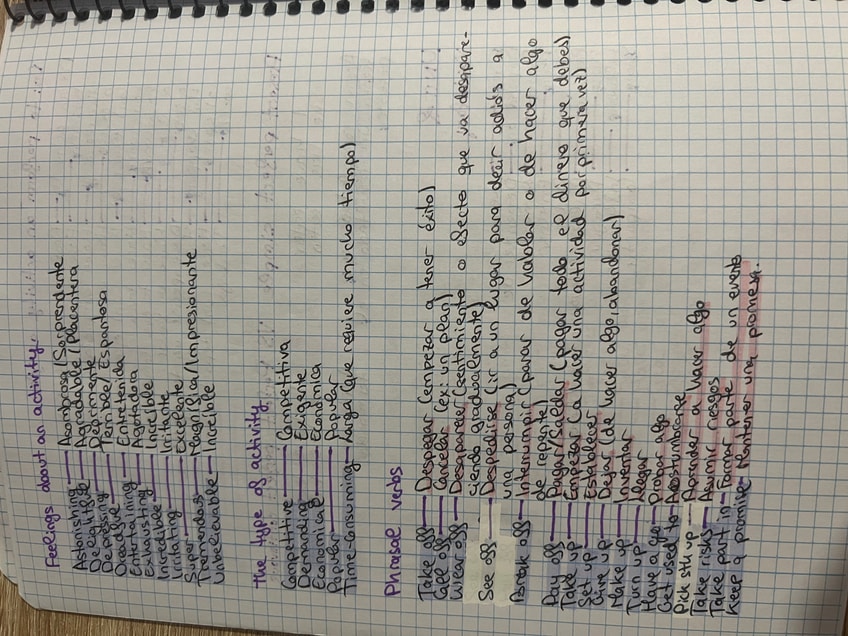 Feelings about an activity.
Astonishing — Asombrosa / Sorprendente
Delightful — Agradable / Placentera
Depressing — Deprimente
Dreadful — Terrible / Espantosa
Entertaining — Entretenida
Exhausting — Agotadora
Incredible — Increíble
Irritating — Irritante
Super — Excelente
Tremendous — Magnífica / Impresionante
Unbelievable — Increíble
the type of activity
Competitive — Competitiva
Demanding — Exigente
Economical — Económica
Popular — Popular
Time-consuming — Larga (que requiere mucho tiempo)
Phrasal verbs
Take off — Despegar (empezar a tener éxito)
Call off — Cancelar (ex: un plan)
Wear off — Desaparecer (sentimiento o efecto que va desapare-
ciendo gradualmente)
See off — Despedirse (ir a un lugar para decir adiós a
una persona)
Break off — Interrumpir (parar de hablar o de hacer algo
de repente)
Pay off — Pagar / Saldar (pagar todo el dinero que debes)
Take up — Empezar (a hacer una actividad por primera vez)
Set up — Establecer
Give up — Dejar (de hacer algo, abandonar)
Make up — Inventar
Turn up — Llegar
Have a go — Probar algo
Get used to — Acostumbrarse
Pick sth up — Aprender a hacer algo
Take risks — Asumir riesgos
Take part in — Formar parte de un evento
Keep a promise — Mantener una promesa.